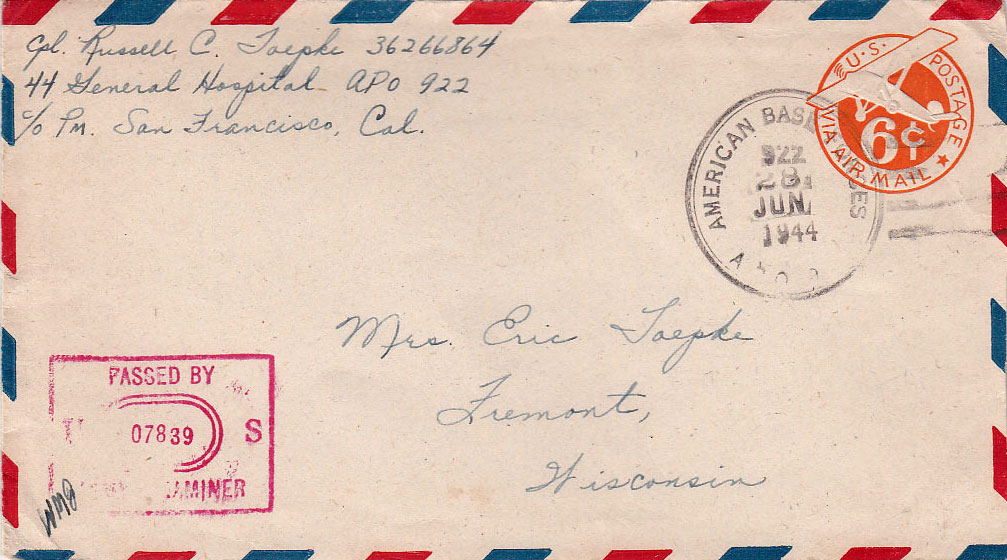 Cpl. Russell C. Toepke 36266864
44 General Hospital APO 922
c/o Pm. San Francisco, Cal.
U.S. POSTAGE
VIA AIR MAIL
6¢
AMERICAN BASE
922
28
JUN
1944
Mrs. Eric Toepke
Fremont,
Wisconsin
PASSED BY
07839
S